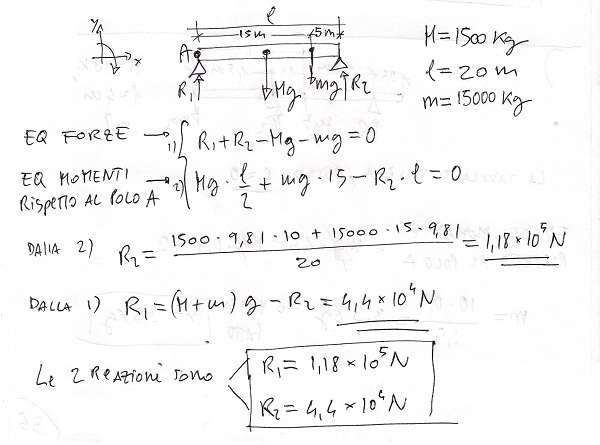 l
y 15m 5m
A x
R₁ Mg mg R₂
M = 1500 Kg
l = 20 m
m = 15000 Kg
EQ FORZE → 1) { R₁ + R₂ - Mg - mg = 0
EQ MOMENTI → 2) { Mg · l/2 + mg · 15 - R₂ · l = 0
RISPETTO AL POLO A
DALLA 2) R₂ = (1500 · 9,81 · 10 + 15000 · 15 · 9,81)/20 = 1,18 × 10⁵ N
DALLA 1) R₁ = (M + m) g - R₂ = 4,4 × 10⁴ N
Le 2 Reazioni sono
R₁ = 1,18 × 10⁵ N
R₂ = 4,4 × 10⁴ N